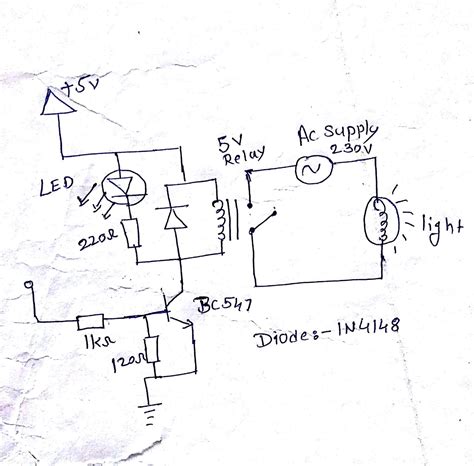 +5V
5V
Relay
Ac Supply
230V
LED
220Ω
light
BC547
1kΩ
120Ω
Diode:- 1N4148